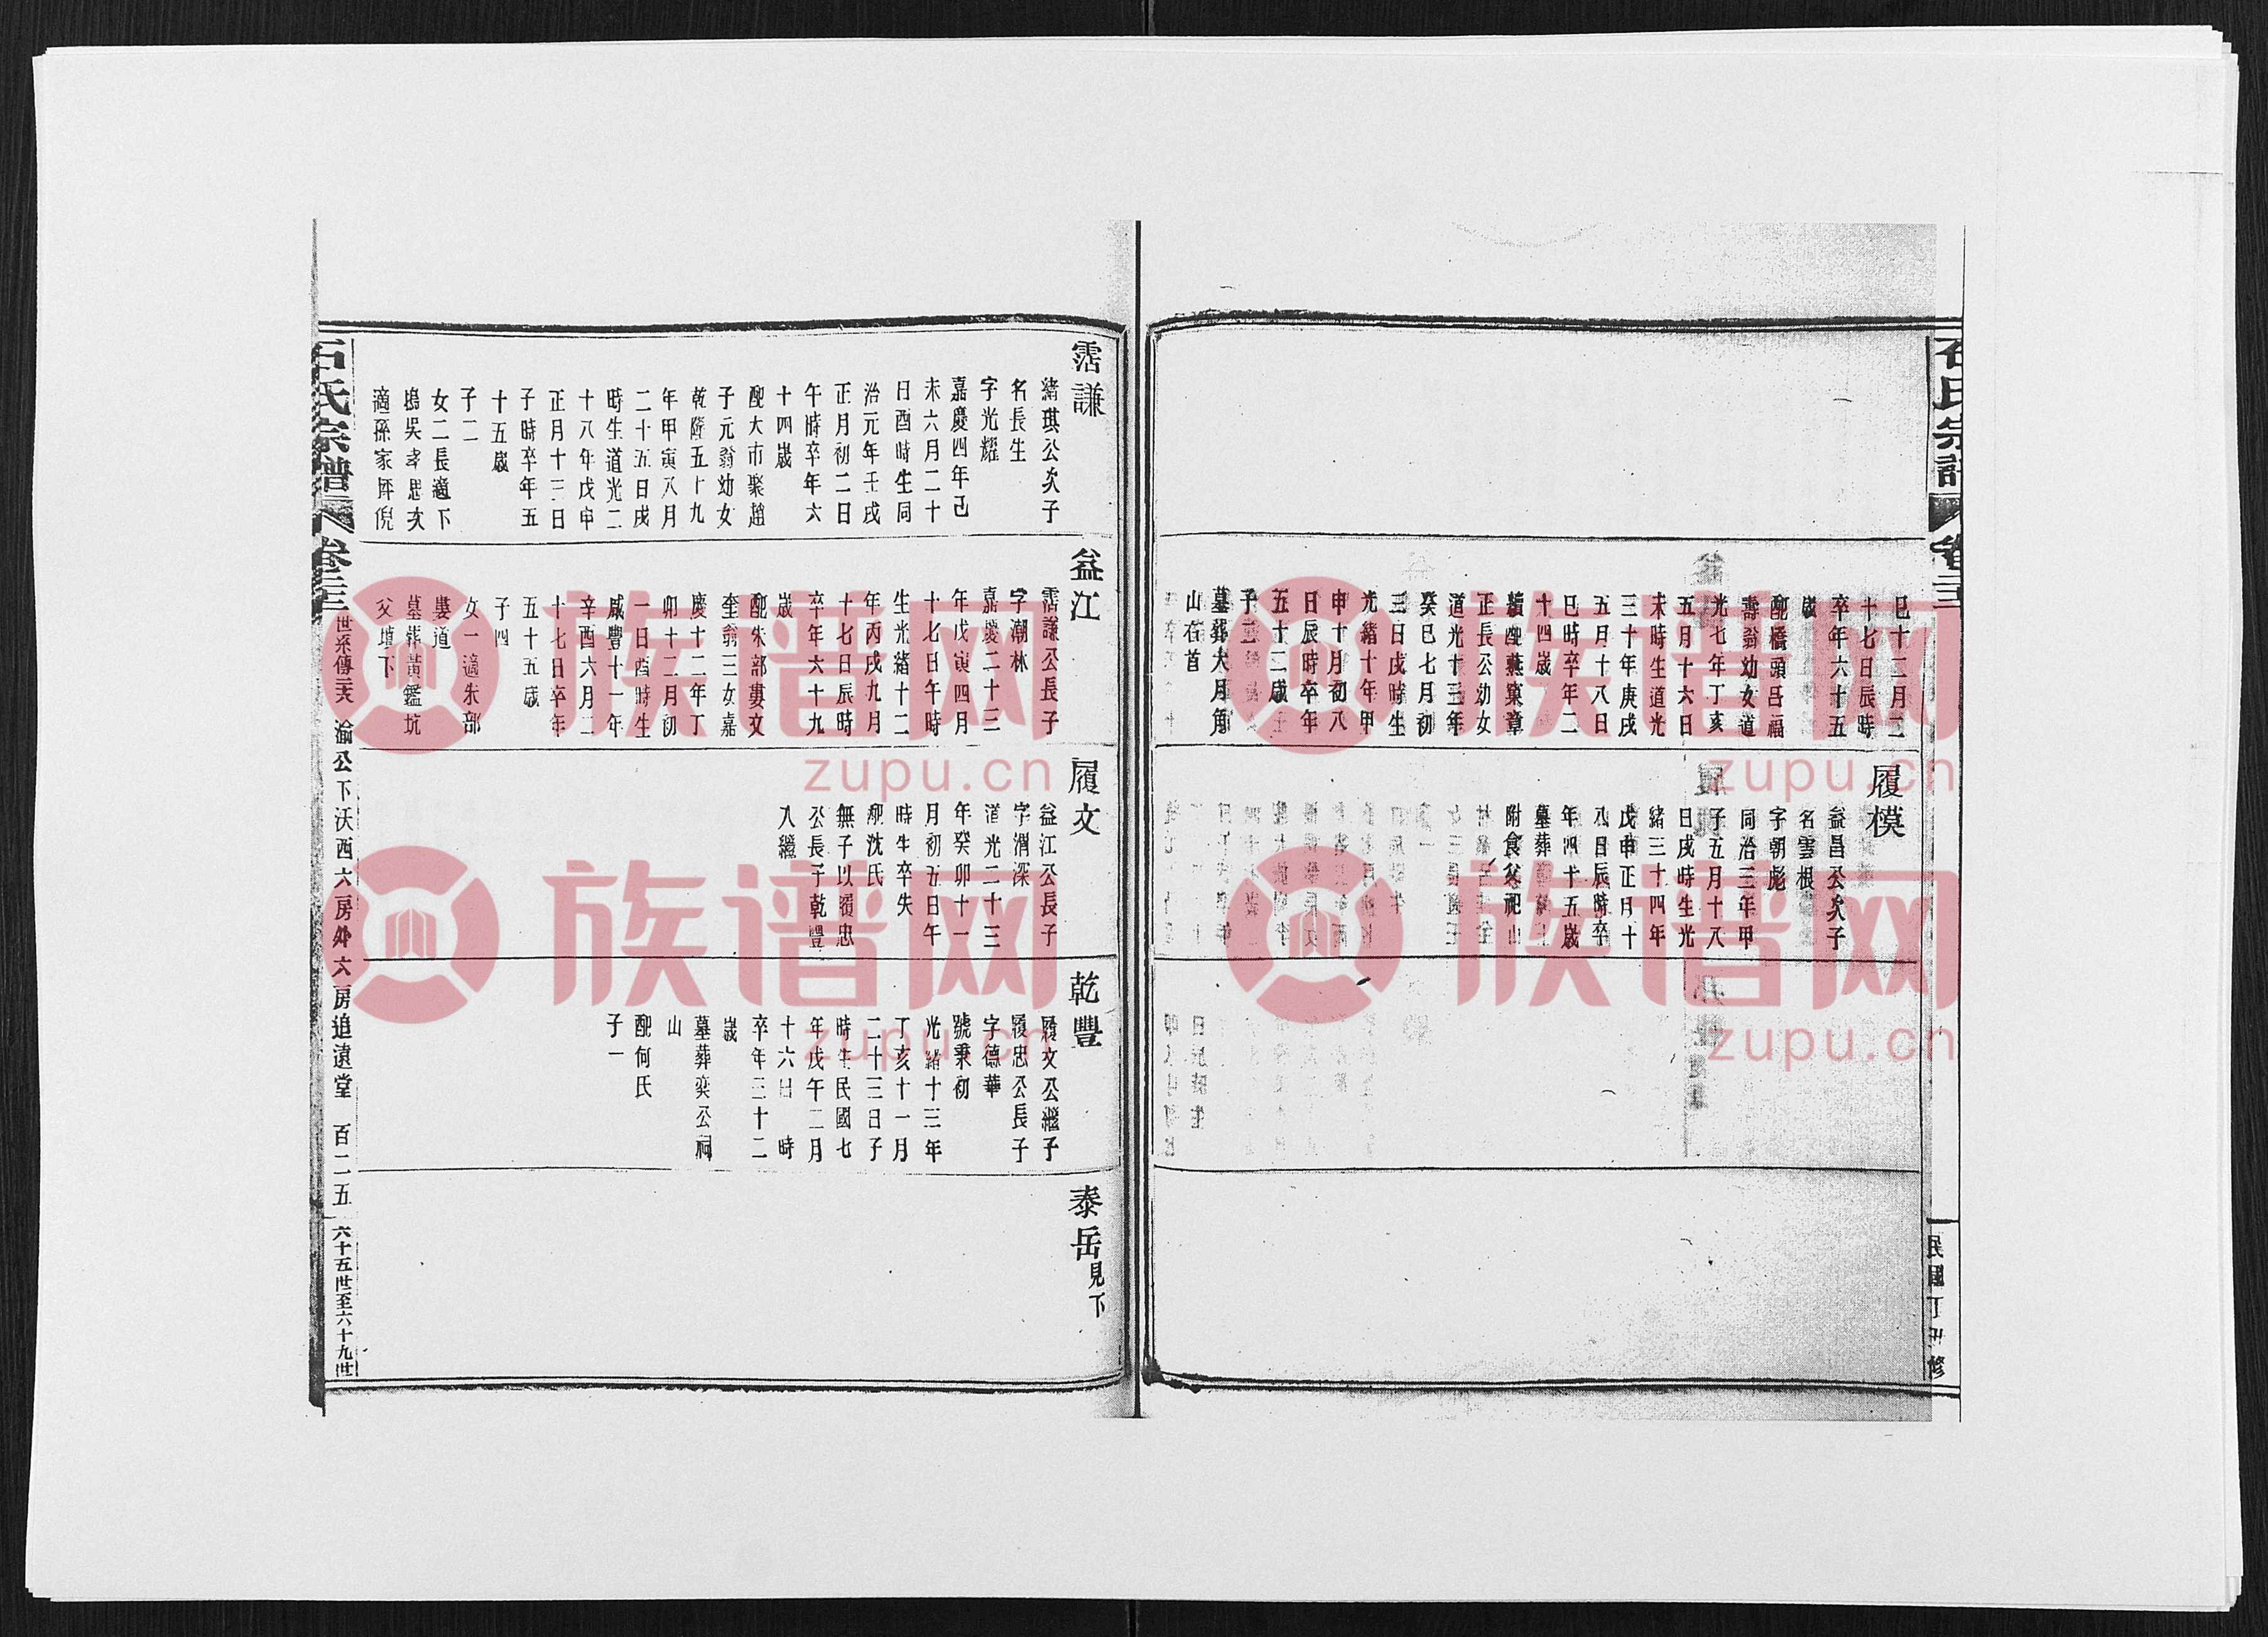 石氏宗譜
卷三三
民國丁丑修
巳十二月二
十七日辰時
卒年六十五
歲
配橋頭呂福
壽翁幼女道
光七年丁亥
五月十六日
未時生道光
三十年庚戌
五月十八日
巳時卒年二
十四歲
續配蕪窠章
正長公幼女
道光十三年
癸巳七月初
三日戌時生
光緒十年甲
申十月初八
日辰時卒年
五十二歲
子二
墓葬大月角
山右首
履模
益昌公次子
名雲根
字朝彪
同治三年甲
子五月十八
日戌時生光
緒三十四年
戊申正月十
八日辰時卒
年四十五歲
墓葬
附食父祀山
霑謙
緒琪公次子
名長生
字光耀
嘉慶四年己
未六月二十
日酉時生同
治元年壬戌
正月初二日
午時卒年六
十四歲
配大市聚趙
子元翁幼女
乾隆五十九
年甲寅八月
二十五日戌
時生道光二
十八年戊申
正月十三日
子時卒年五
十五歲
子二
女二長適下
塢吳孝思次
適孫家坪倪
益江
霑謙公長子
字潮林
嘉慶二十三
年戊寅四月
十七日午時
生光緒十二
年丙戌九月
十七日辰時
卒年六十九
歲
配朱部婁文
奎翁三女嘉
慶十二年丁
卯十二月初
一日酉時生
咸豐十一年
辛酉六月二
十七日卒年
五十五歲
子四
女一適朱部
婁道
墓葬黃鑑坑
父墳下
履文
益江公長子
字潤深
道光二十三
年癸卯十一
月初五日午
時生卒失
配沈氏
無子以履忠
公長子乾豐
入繼
乾豐
履文公繼子
履忠公長子
字德華
號秉初
光緒十三年
丁亥十一月
二十三日子
時生民國七
年戊午二月
十六日 時
卒年三十二
歲
墓葬奕公祠
山
配何氏
子一
泰岳見下
石氏宗譜
卷三三
世系傳
渝公下沃西六房外六房追遠堂
百二五
六十五世至六十九世
族谱网
zupu.cn
族谱网
zupu.cn
族谱网
zupu.cn
族谱网
zupu.cn